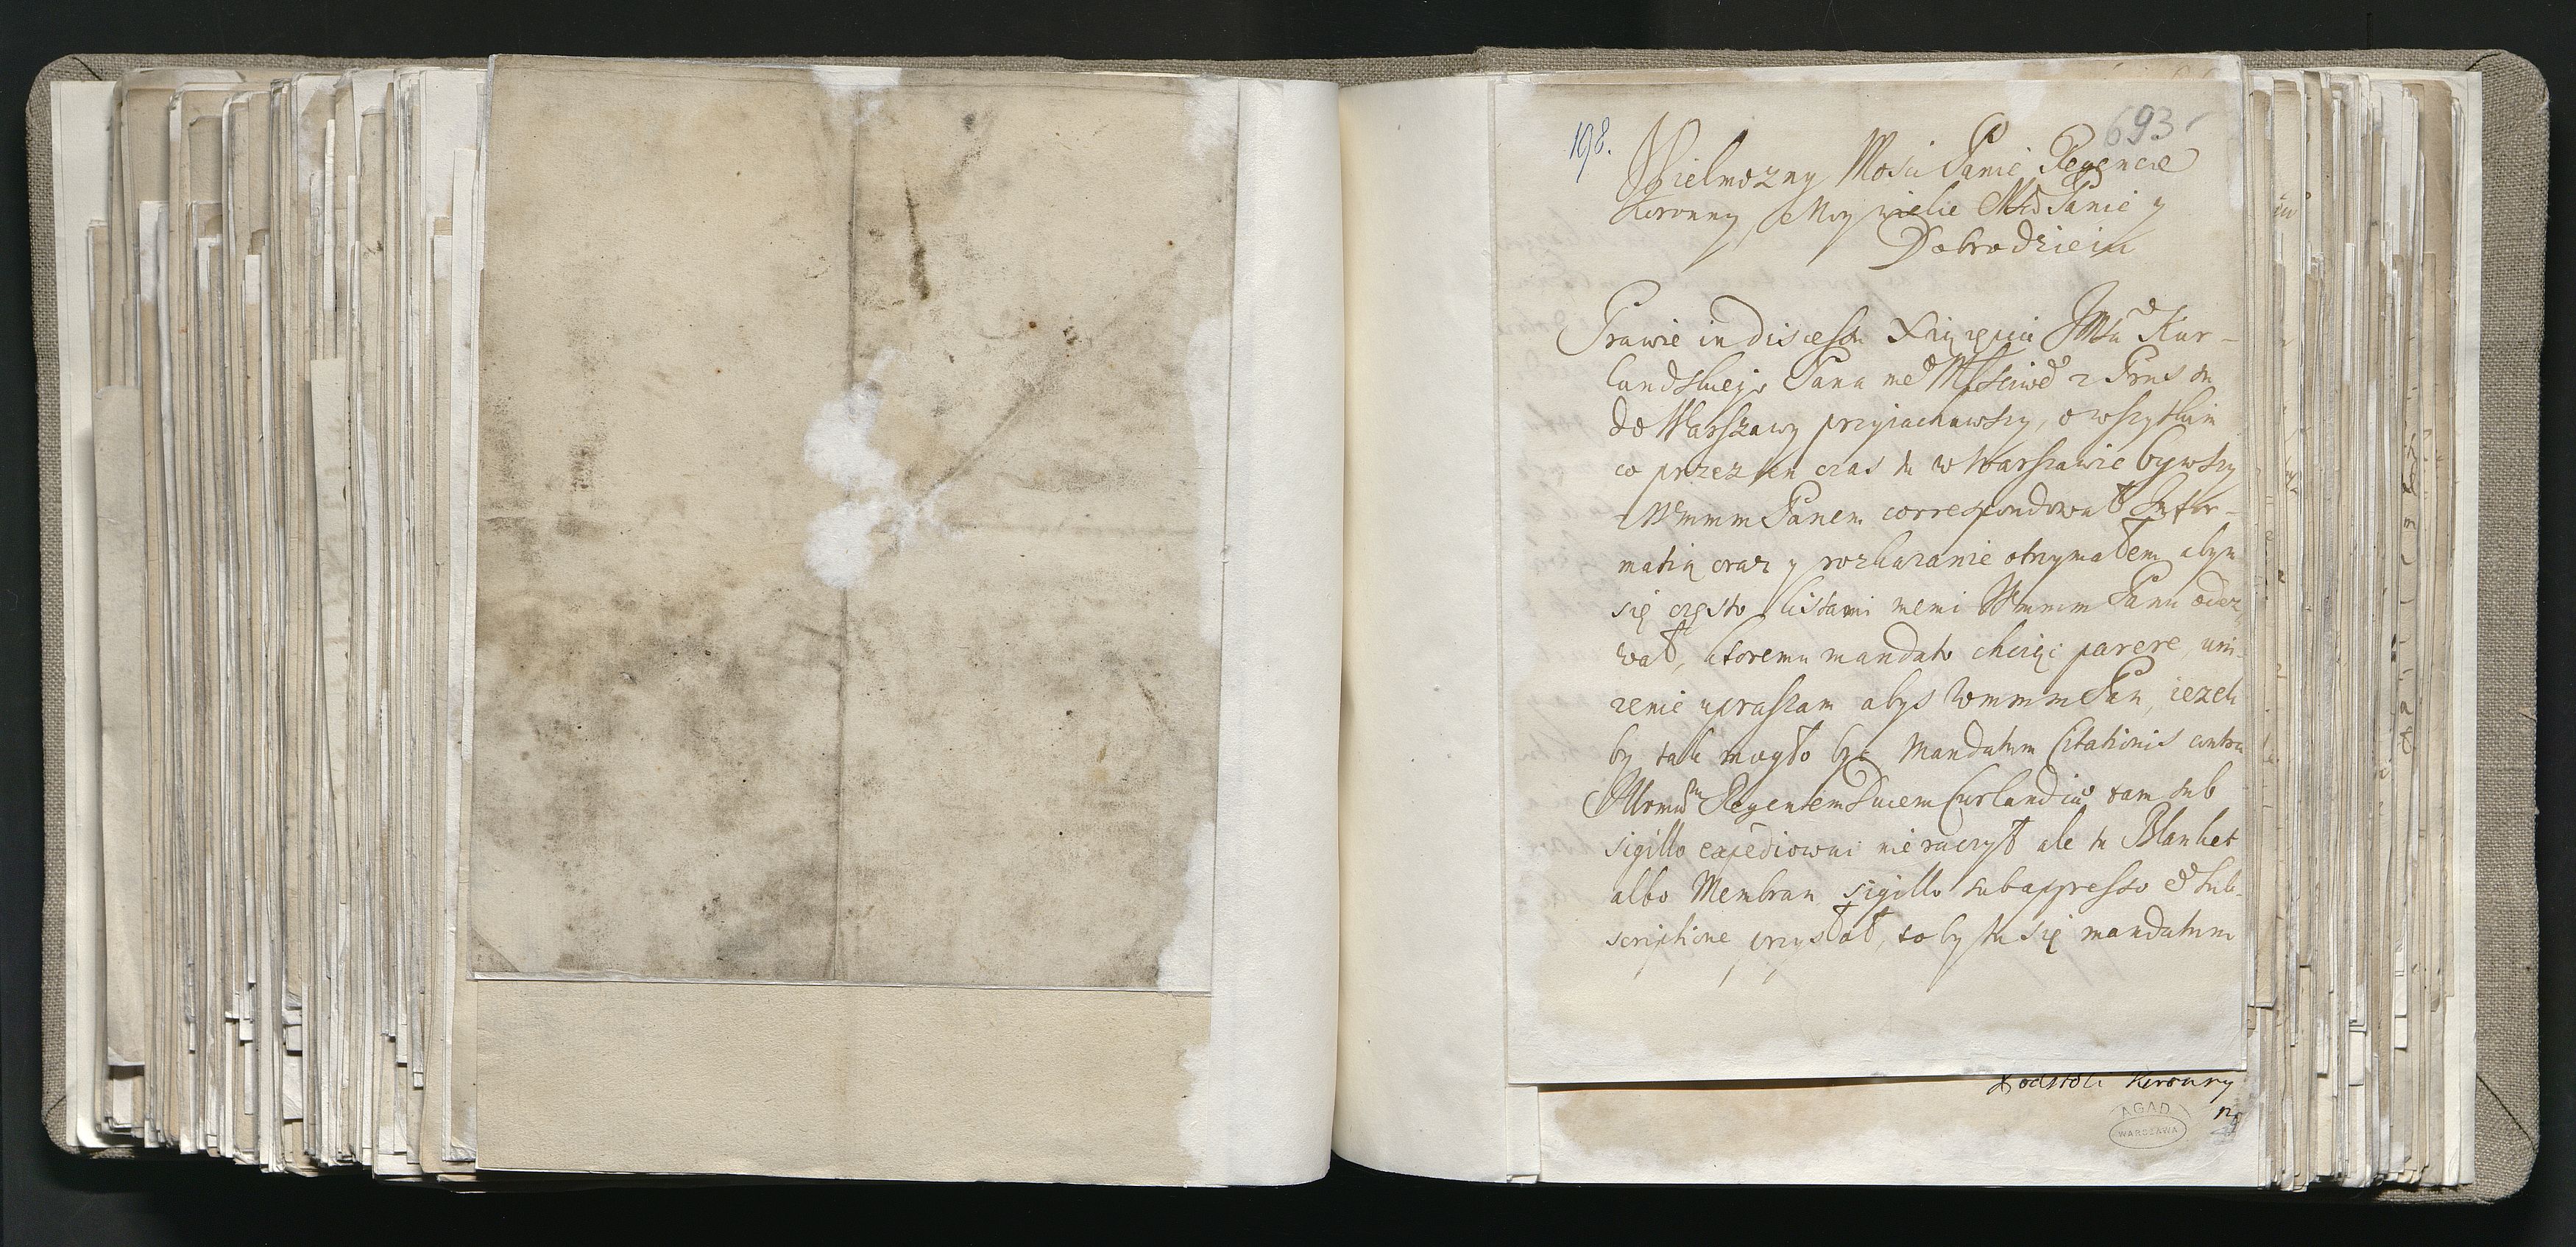 693
198.
Wielmozny Mosci Panie Regencie
Koronny Moy wielce Mſd Panie y
Dobrodzieiu
Prawie in discessu Xiązęcia JMści Kur-
landskiego Pana me° Mſciwe° z Prus tu
do Warszawy przyiachawszy, o wszytkim
co przez ten czas tu w Warszawie bywszy
z Wmmm Panem correspondował Infor-
matią oraz y rozkazanie otrzymałem abym
się często listami memi Wmmm Panu odez-
wał, ktoremu mandato chcięc parere, uni-
zenie upraszam abys Wmmm Pan, iezeli
by tak mogło byc Mandatum Citationis contra
Illrmum Regentem Ducem Curlandiae tam sub
sigillo expediowac nie raczył ale tu Blanket
albo Membran sigillo subappresso et sub-
scriptione przysłał, to by tu się mandatum
Podstoli Koronny
AGAD
WARSZAWA